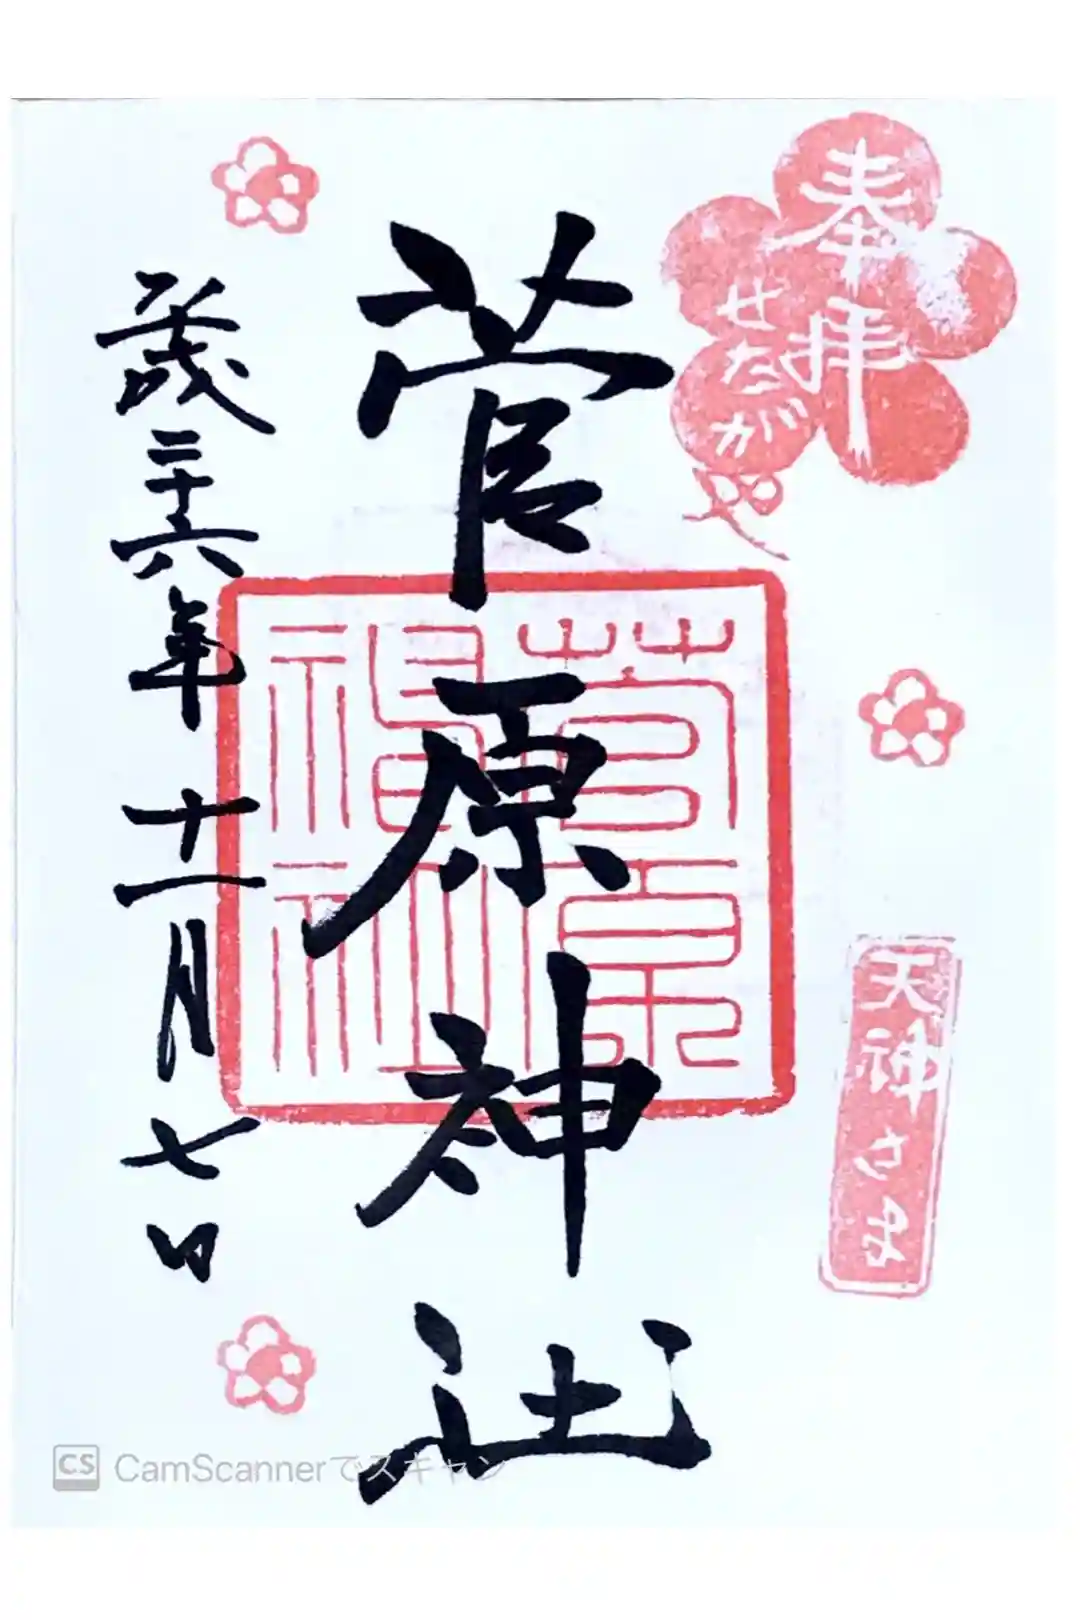 奉拝
せたがや
天神さま
菅原神社
菅原
神社
平成二十六年十一月七日
CS CamScannerでスキャン